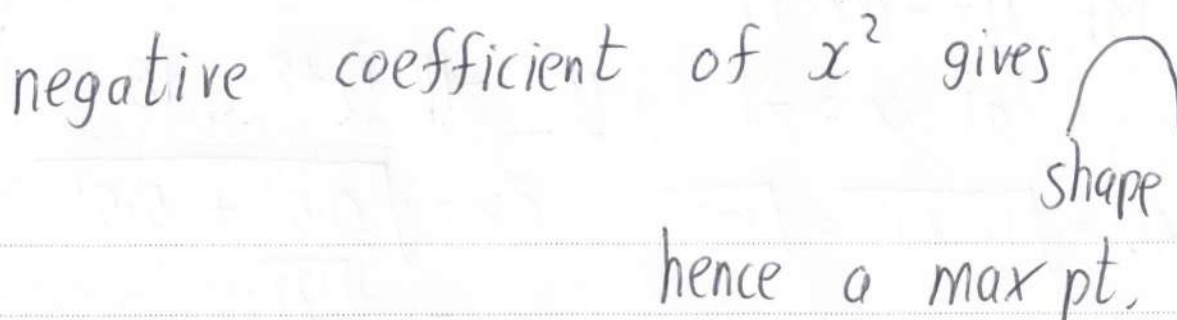 negative coefficient of x² gives
shape
hence a max pt.